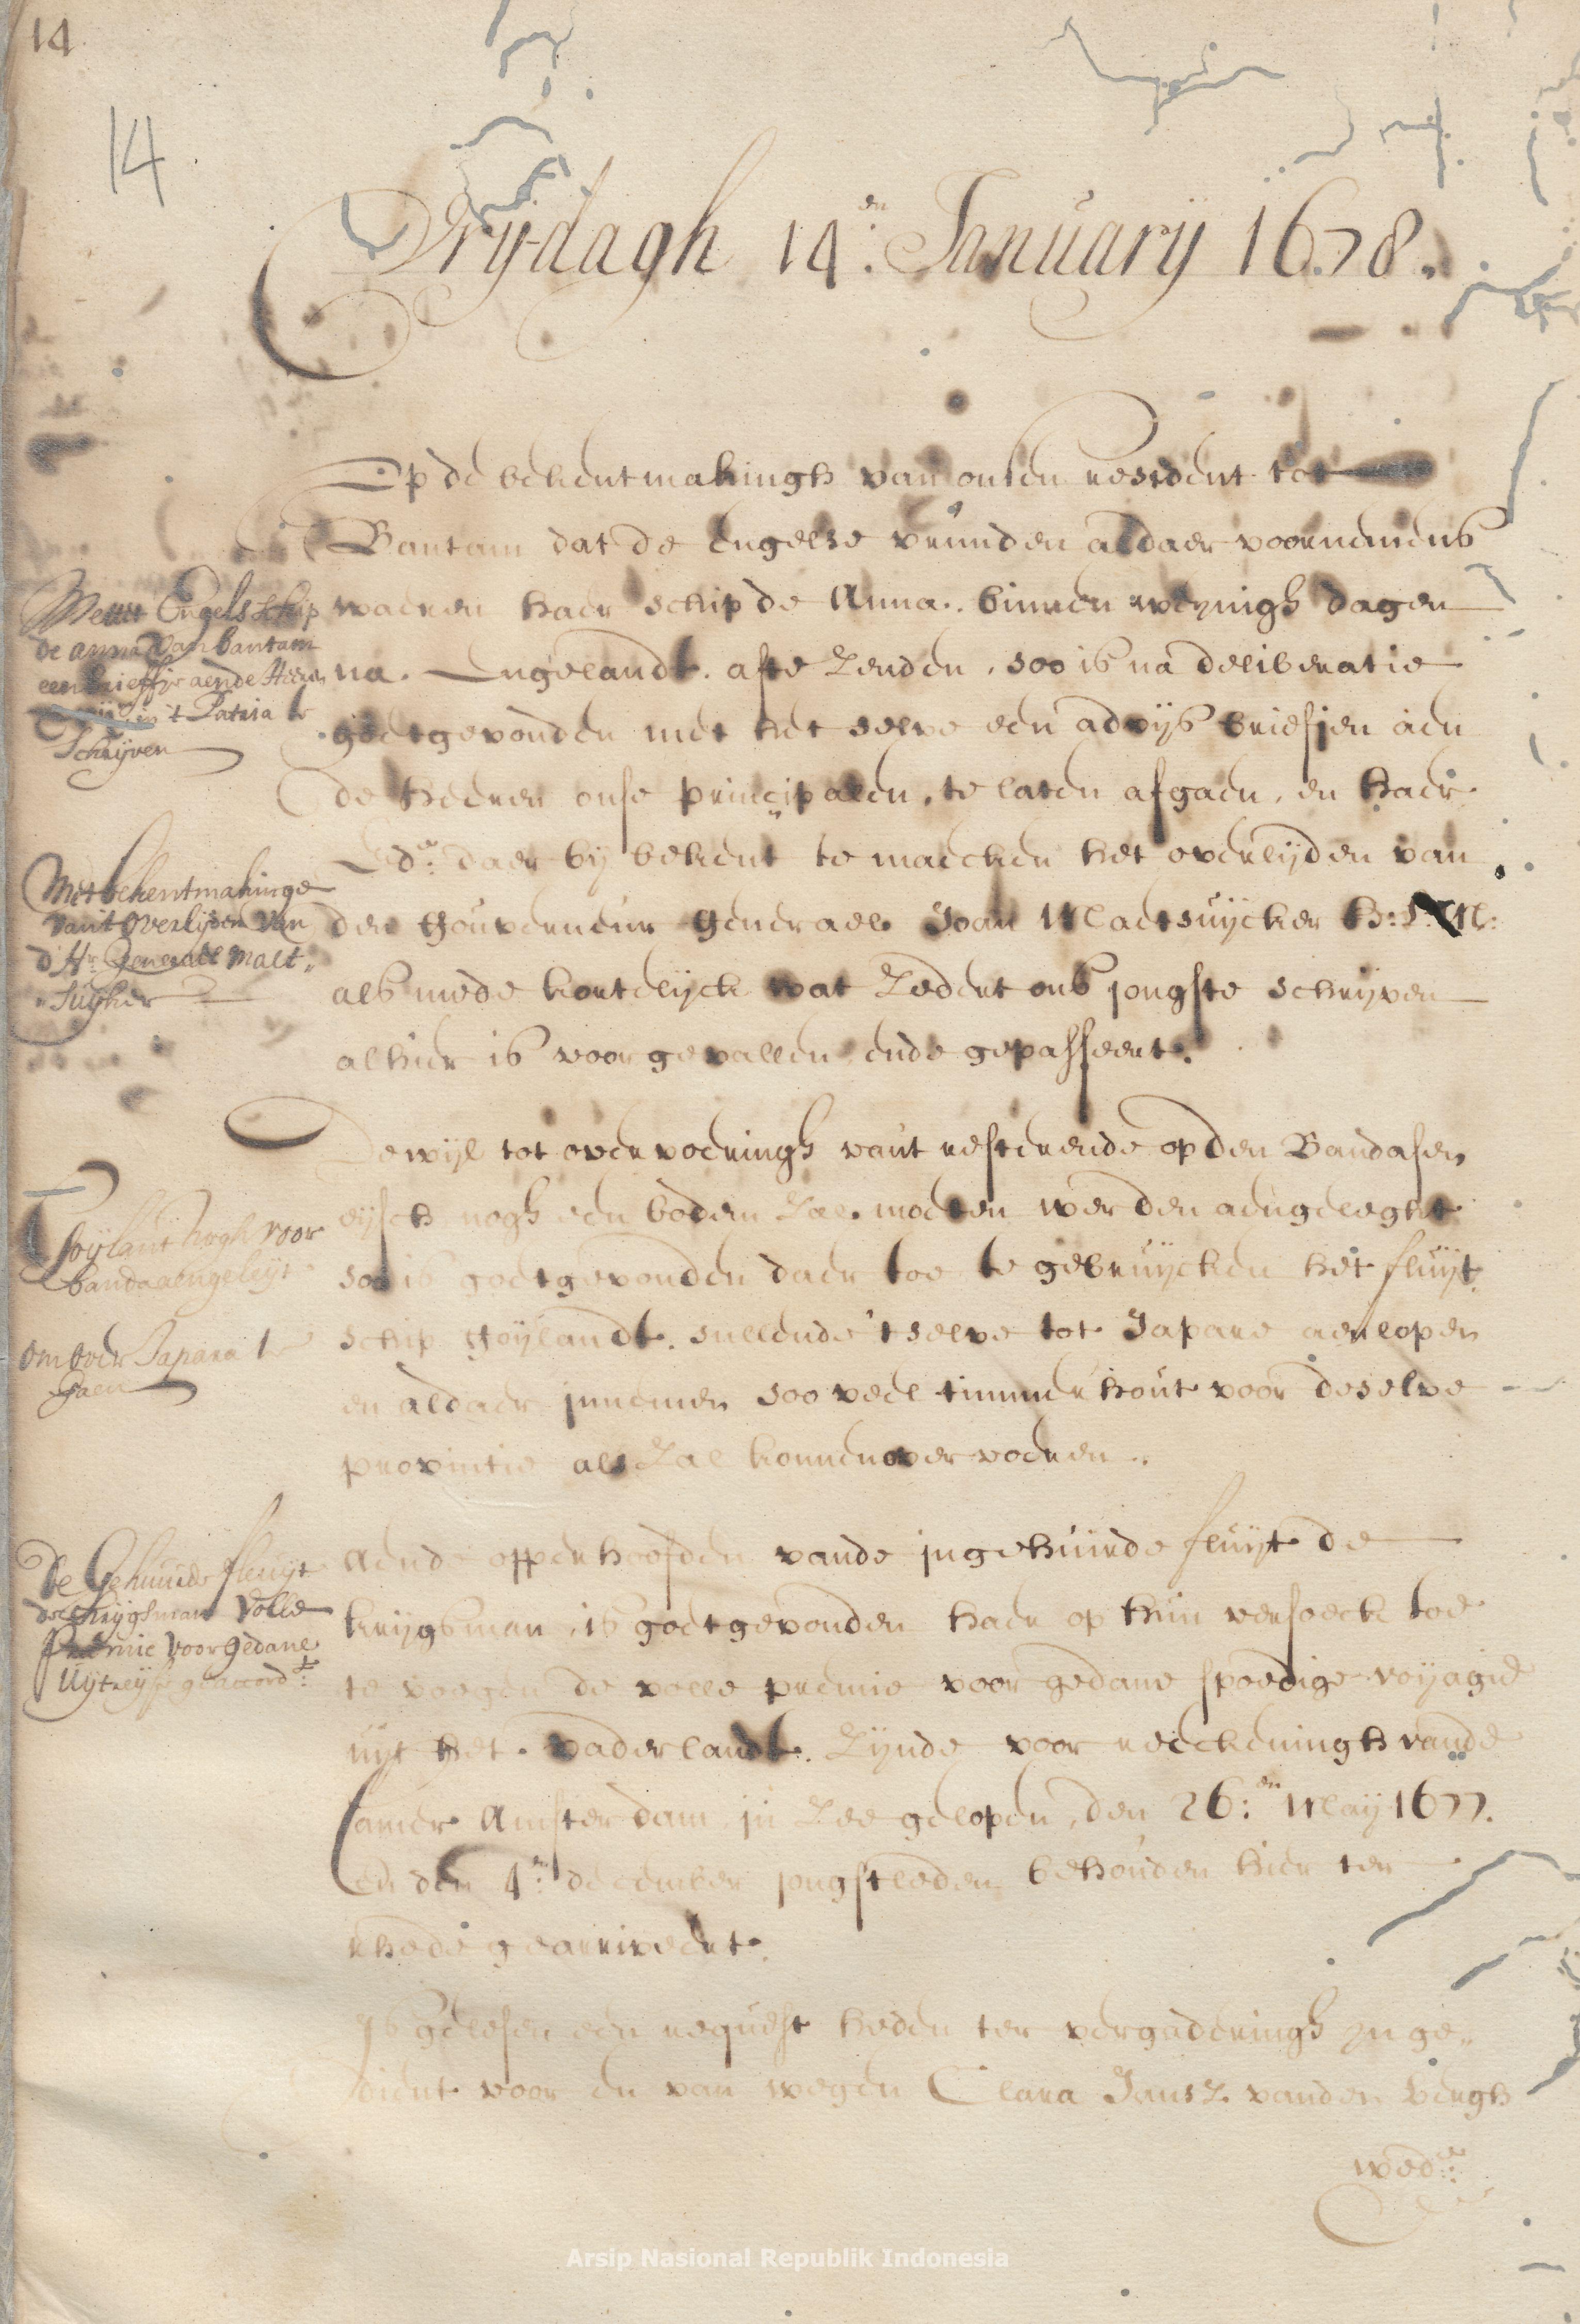 14
14
Vrydagh 14:en Januarij 1678.
Op de bekentmakingh van onsen resident tot
Bantam dat de engelse vrunden aldaer voornemens
waeren haer schip de Anna. binnen weynigh dagen
na. Engelandt. afte zenden, soo is na deliberatie
goetgevonden met het selve een advijs briefjen aen
de heeren onse principalen, te laten afgaen, en haer
Ed:e daer bij bekent te maecken het overlijden van
den Gouverneur Generael Joan Maetsuijcker
als mede kortelijck wat zedert ons jongste schrijven
alhier is voorgevallen ende gepasseert.
Mettet Engels schip
de anna van bantam
een brieffje aende Heeren
in 't Patria te
Schrijven
Met bekentmakinge
vant overlijden van
d' Hr. Generael Maet„
„suyker
Dewijl tot overvoeringh vant resterende op den Bandasen
eijsch nogh een bodem zal moeten werden aengeleght
soo is goetgevonden daer toe te gebruijcken het fluijt
schip Goijlandt. sullende 't selve tot Japare aenlopen
en aldaer innemen soo veel timmerhout voor deselve
provintie als zal konnen overvoeren.
Goijlant nogh voor
banda aengeleyt
om over Japara te
gaen
Aende opperhoofden vande ingehuirde fluijt de
krijgsman, is goetgevonden haer op hun versoeck toe
te voegen de volle premie voor gedane spoedige voyagie
uijt het vaderlandt. zijnde voor reeckeningh vande
Camer Amsterdam in zee gelopen, den 26:en Maij 1677.
en den 4:en december jongstleden behouden hier ter
rhede gearriveert.
De Gehuurde fluijt
de Krijgsman volle
Premie voor gedane
Uijtreyse geaccord:t
Is gelesen een request heden ter vergaderingh inge„
dient voor en van wegen Clara Jansz. vanden Bergh
wed:e
Arsip Nasional Republik Indonesia